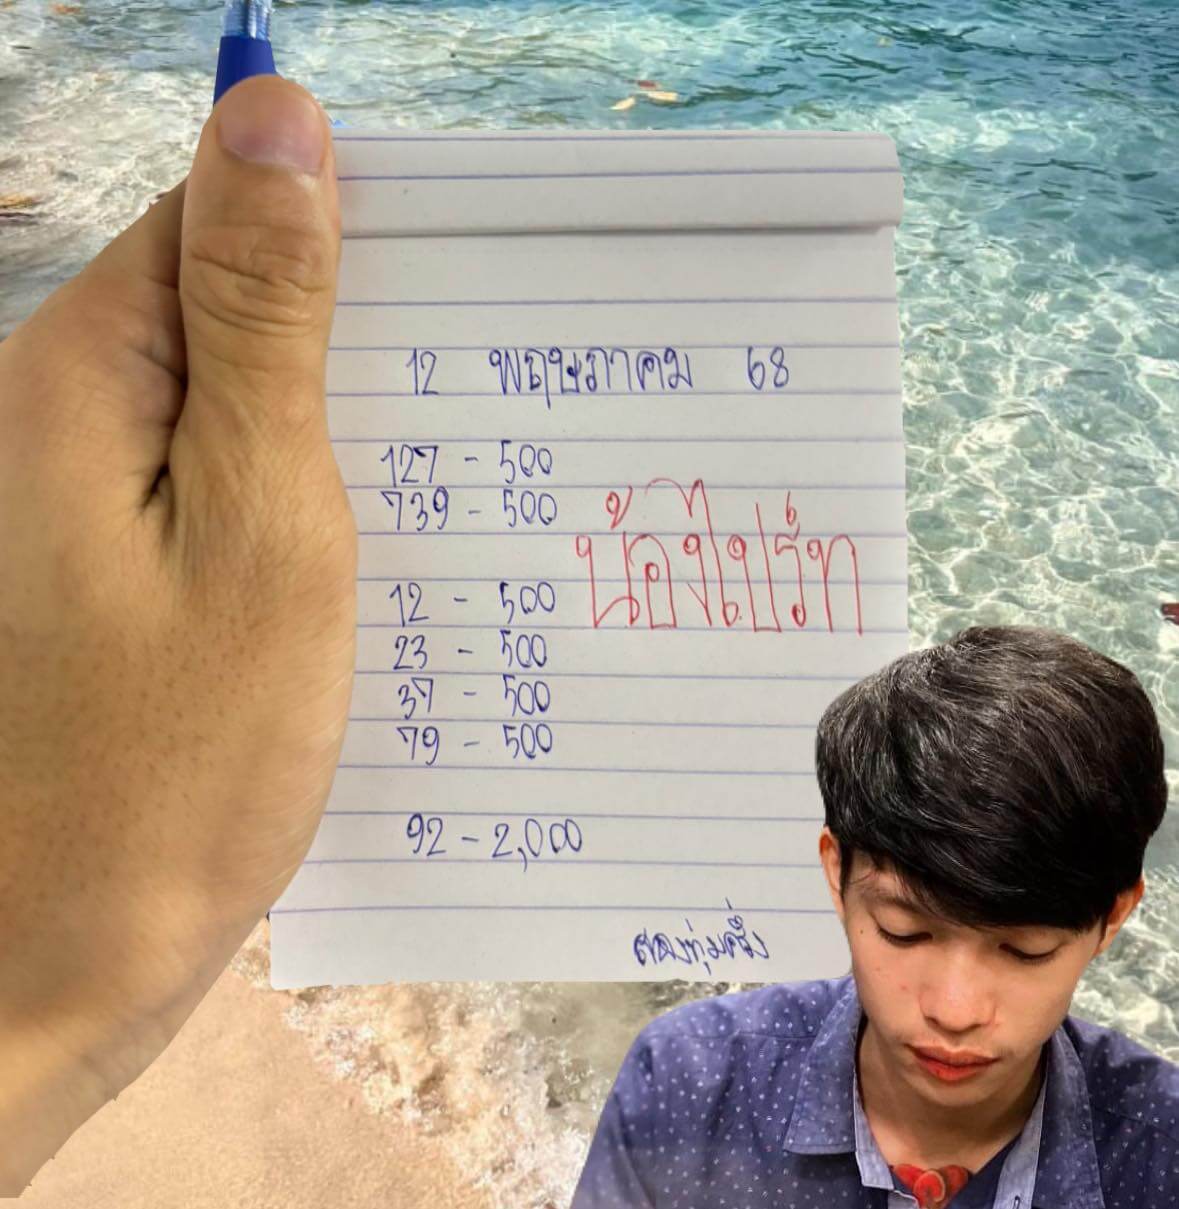 12 พฤษภาคม 68
127 - 500
739 - 500
น้องไปร์ท
12 - 500
23 - 500
37 - 500
79 - 500
92 - 2,000
สองทุ่มครึ่ง